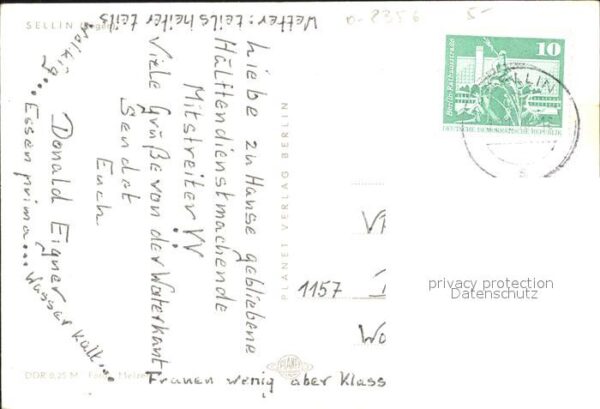 SELLIN (Rügen)
Wetter: teils heiter teils
wolkig...
Liebe zu Hause gebliebene
Hälftendienstmachende
Mitstreiter VV
Viele Grüße von der Waterkant
Sendet
Euch
Donald Eigner
...Essen prima... Wasser kalt...
Frauen wenig aber Klass
PLANET VERLAG BERLIN
DDR 0,25 M
1157
Berlin-Rathausstraße
10
DEUTSCHE DEMOKRATISCHE REPUBLIK
SELLIN
a-8356
5-
privacy protection
Datenschutz
PLANET